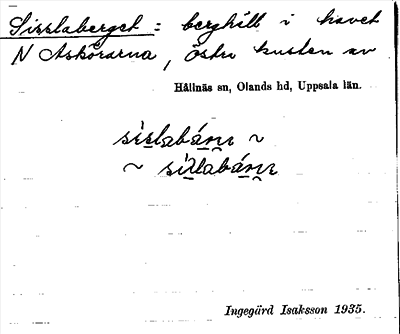 Sisslaberget : berghäll i havet
N Askörarna, östra kusten av
Hållnäs sn, Olands hd, Uppsala län.
Ingegärd Isaksson 1935.